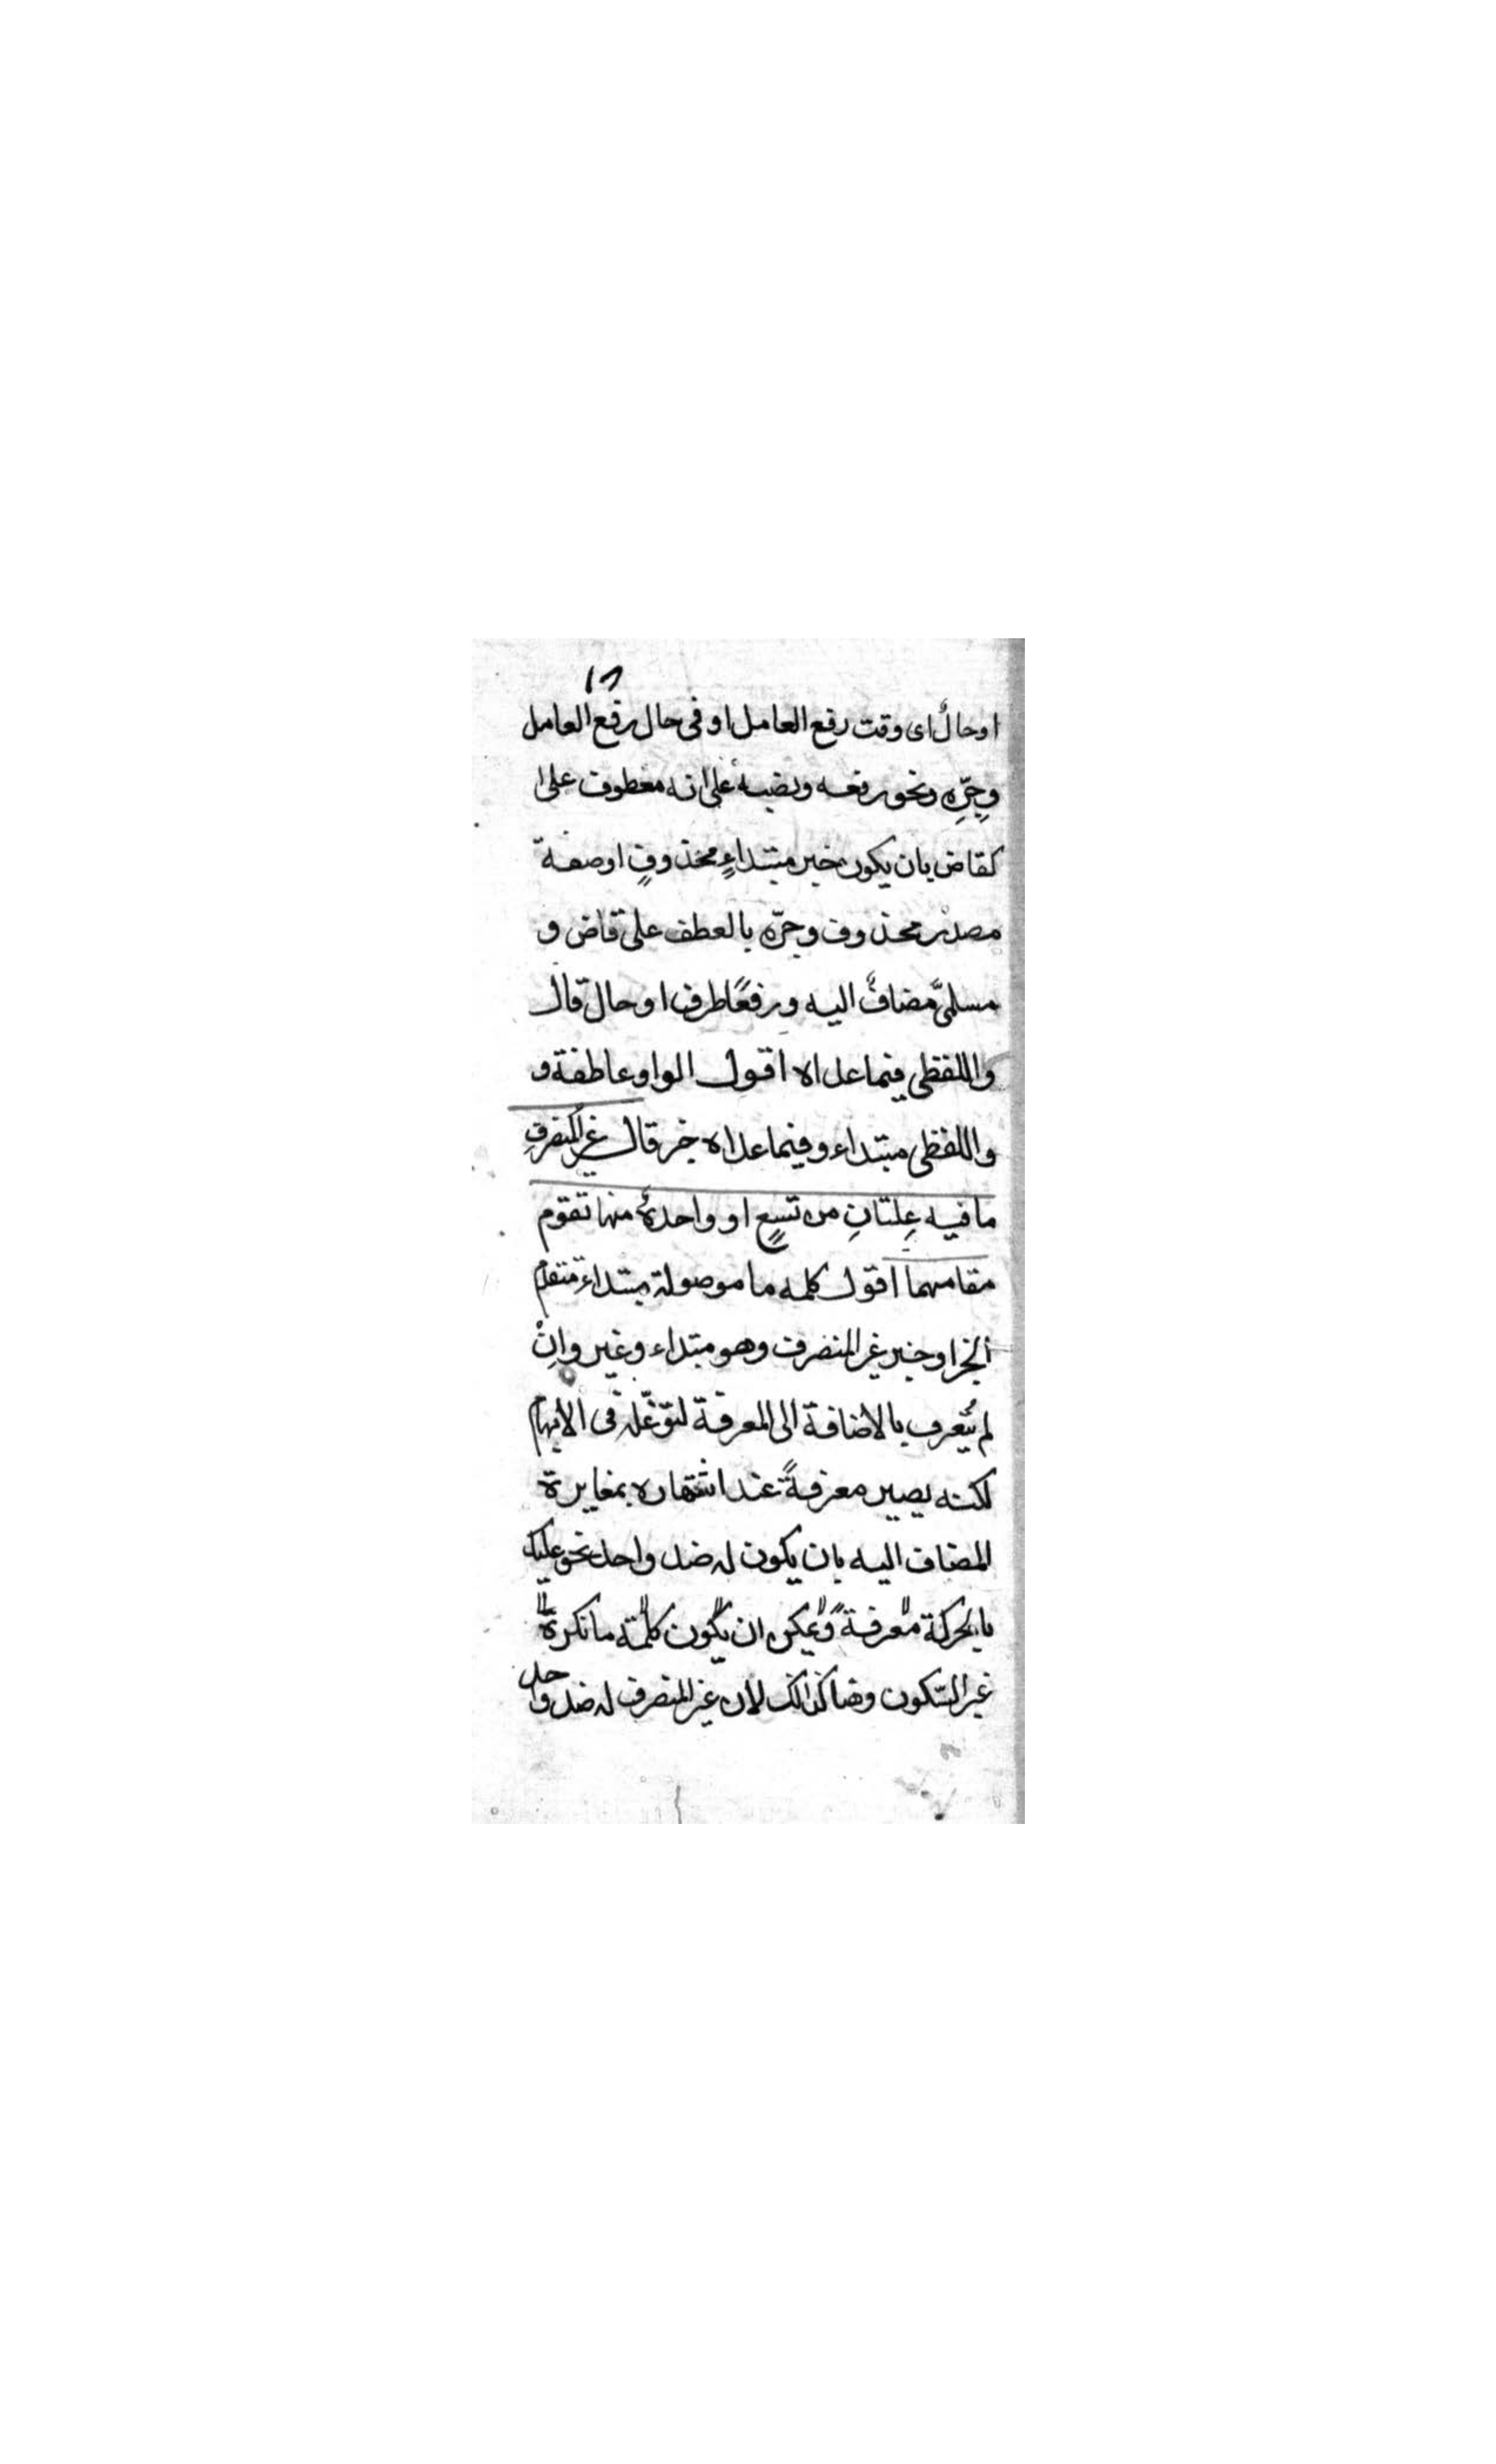 ١٦
او حالٌ اى وقت رفع العامل او فى حال رفع العامل
وجرِّهِ ونحو رفعه ونصبه على انه معطوف على
كقاض بان يكون خبر مبتداءٍ محذوفٍ او صفة
مصدر محذوف وجرّه بالعطف على قاض و
مسلمىَّ مضافٌ اليه ورفعًا ظرف او حال قال
واللفظى فيما عداه اقول الواو عاطفة و
واللفظى مبتداء وفيما عداه خبر قال غير المنصرفِ
ما فيه عِلتانِ من تسعٍ او واحدةٌ منها تقوم
مقامهما اقول كلمه ما موصولة مبتداء متقدم
الخبر او خبر غير المنصرف وهو مبتداء وغير وانْ
لم يُتعرف بالاضافة الى المعرفة لتوغّله فى الابهام
لكنه يصير معرفةً عند اشتهاره بمغايرة
المضاف اليه بان يكون له ضد واحد نحو عليك
بالحركة معرفة ويمكن ان يكون كلمته ما نكرة
غير السّكون وهنا كذالك لان غير المنصرف له ضد واحد